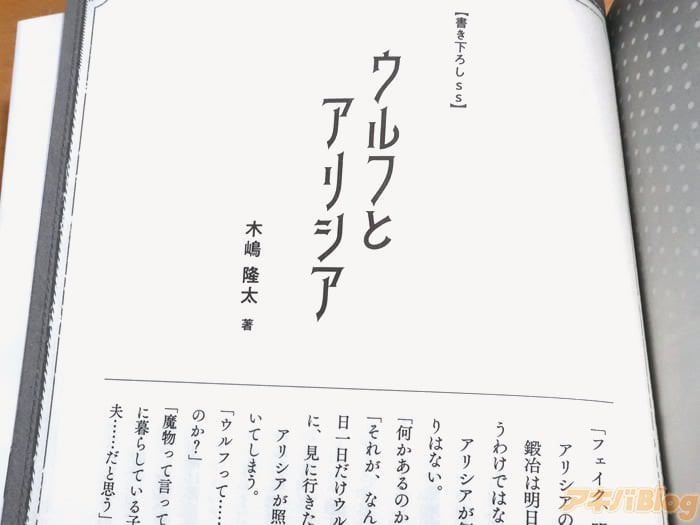 【書き下ろしｓｓ】
ウルフと
アリシア
木嶋隆太 著
「フェイク、
アリシアの
鍛冶は明日
うわけではな
アリシアが
りはない。
「何かあるのか
「それが、なん
日一日だけウル
に、見に行きた
アリシアが照
いてしまう。
「ウルフって……
のか？」
「魔物って言って
に暮らしている子
夫……だと思う」
アキバBlog